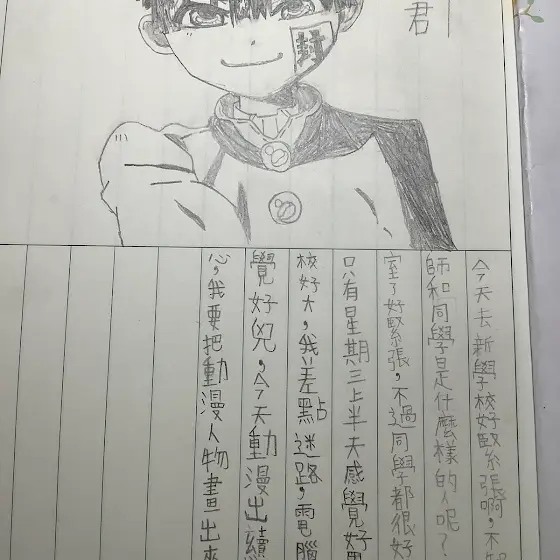 君
封
今天去新學校好緊張啊,不
師和同學是什麼樣的人呢?
室了好緊張,不過同學都很好
只有星期三上半天感覺好
校好大,我差點迷路,電腦
覺好兇,今天動漫出續
心,我要把動漫人物畫出來